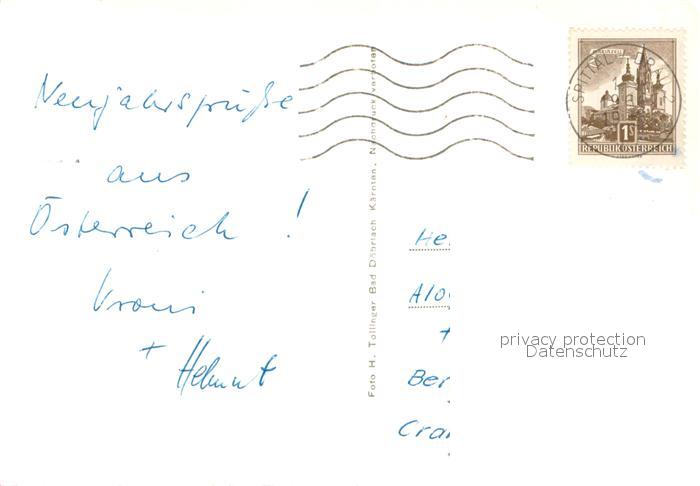 Neujahrsgrüße
aus
Österreich !
Vroni
+ Helmut
Foto H. Tollinger Bad Döbriach Kärnten. Nachdruck verboten
MARIAZELL
1S
REPUBLIK ÖSTERREICH
SPITTAL
He
Alo
+
Ber
Cra
privacy protection
Datenschutz